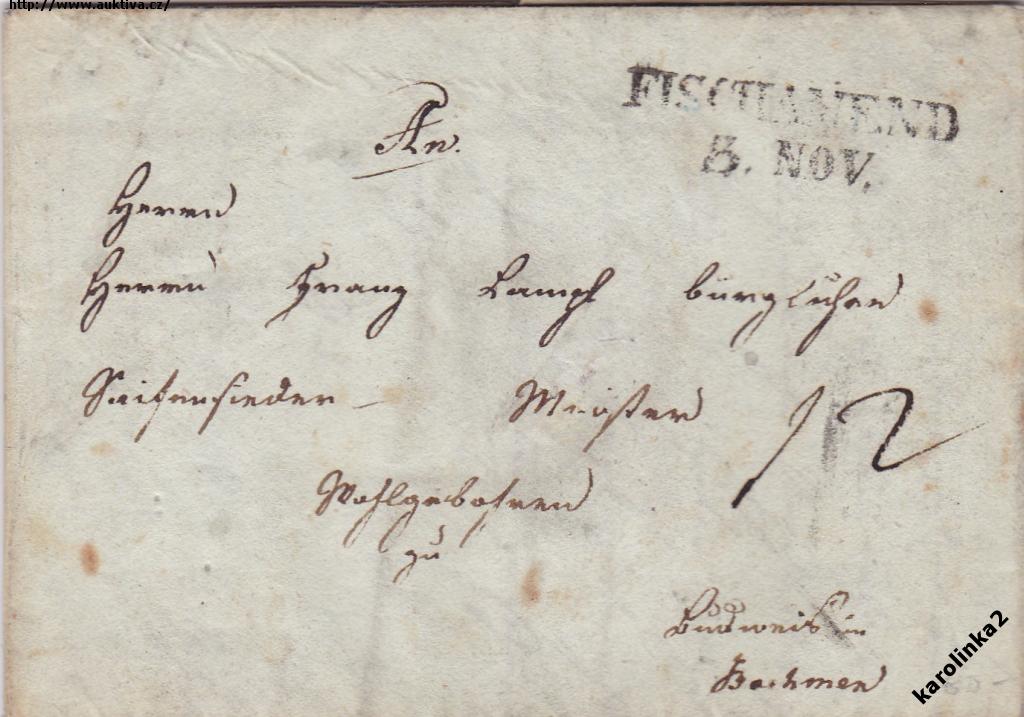 http://www.auktiva.cz/
FISCHAMEND
3. NOV.
An.
Herrn
Herrn Franz Lampl bürgl
Saifensieder Meister 12
Wohlgebohren
zu
Budweis in
Boehmen
karolinka2